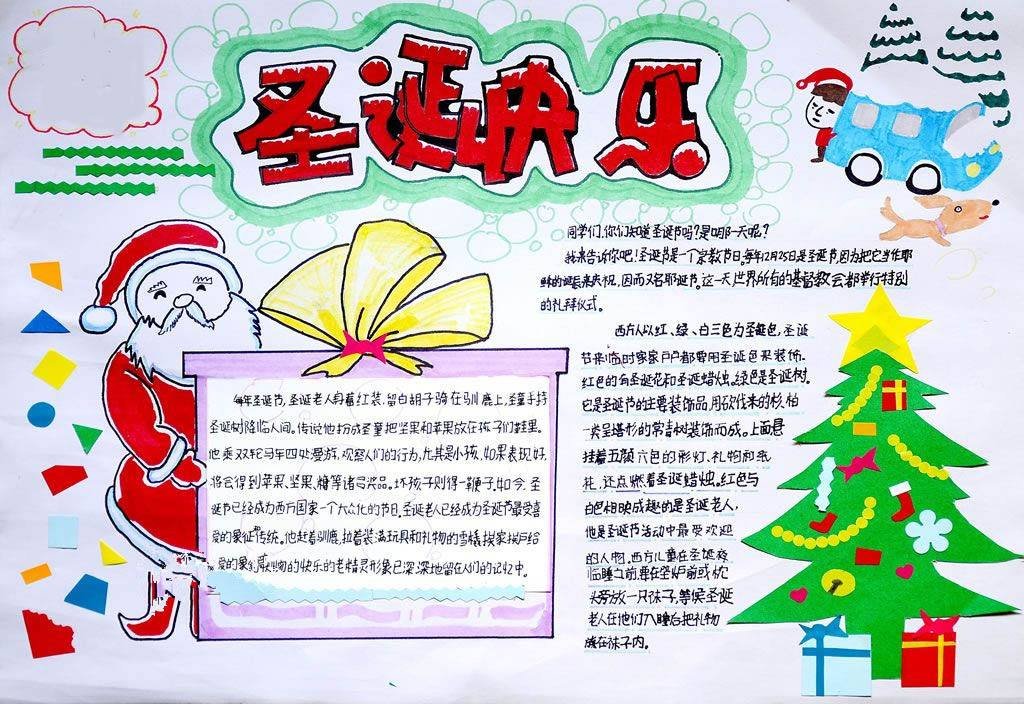 圣诞快乐
同学们,你们知道圣诞节吗?是哪一天呢?
我来告诉你吧!圣诞节是一个宗教节日,每年12月25日是圣诞节,因为把它当作耶
稣的诞辰来庆祝,因而又名耶诞节。这一天世界所有的基督教会都举行特别
的礼拜仪式。
西方人以红、绿、白三色为圣诞色,圣诞
节来临时家家户户都要用圣诞色来装饰。
红色的有圣诞花和圣诞蜡烛。绿色是圣诞树。
它是圣诞节的主要装饰品,用砍伐来的杉、柏
一类呈塔形的常青树装饰而成。上面悬
挂着五颜六色的彩灯、礼物和纸
花,还点燃着圣诞蜡烛。红色与
白色相映成趣的是圣诞老人,
他是圣诞节活动中最受欢迎
的人物。西方儿童在圣诞夜
临睡之前,要在壁炉前或枕
头旁放一只袜子,等候圣诞
老人在他们入睡后把礼物
放在袜子内。
每年圣诞节,圣诞老人身着红装,留白胡子骑在驯鹿上,圣童手持
圣诞树降临人间。传说他扮成圣童把坚果和苹果放在孩子们鞋里。
他乘双轮马车四处漫游,观察人们的行为,尤其是小孩,如果表现好,
将会得到苹果、坚果、糖等诸多奖品。坏孩子则得一鞭子。如今,圣
诞节已经成为西方国家一个大众化的节日,圣诞老人已经成为圣诞节最受喜
爱的象征传统。他赶着驯鹿,拉着装满玩具和礼物的雪橇挨家挨户给
礼物的快乐的老精灵形象已深深地留在人们的记忆中。